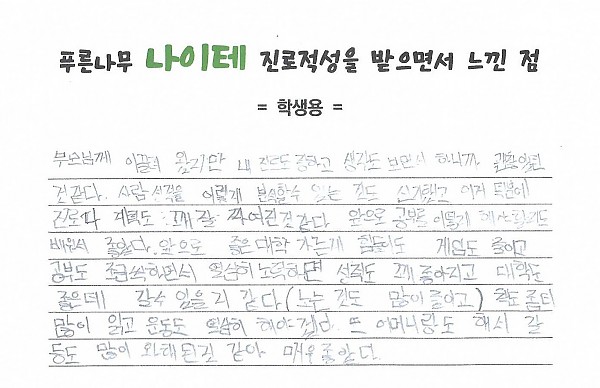 푸른나무 나이테 진로적성을 받으면서 느낀 점
= 학생용 =
부모님께 이끌려 왔지만 내 진로도 정하고 생각도 보면서 하니까 괜찮았던
것 같다. 사람 성격을 이렇게 분석할수 있는 것도 신기했고 이거 덕분에
진로나 계획도 꽤 잘 짜여진것 같다 앞으로 공부를 어떻게 해야할지도
배워서 좋았다. 앞으로 좋은 대학 가는게 힘들지도 게임도 줄이고
공부도 조금씩하면서 열심히 노력하면 성적도 꽤 좋아지고 대학도
좋은데 갈수 있을거 같다 (노는 것도 많이 줄이고) 책도 좀더
많이 읽고 운동도 열심히 해야겠다. 또 어머니랑도 해서 갈
등도 많이 완화된것 같아 매우 좋았다.